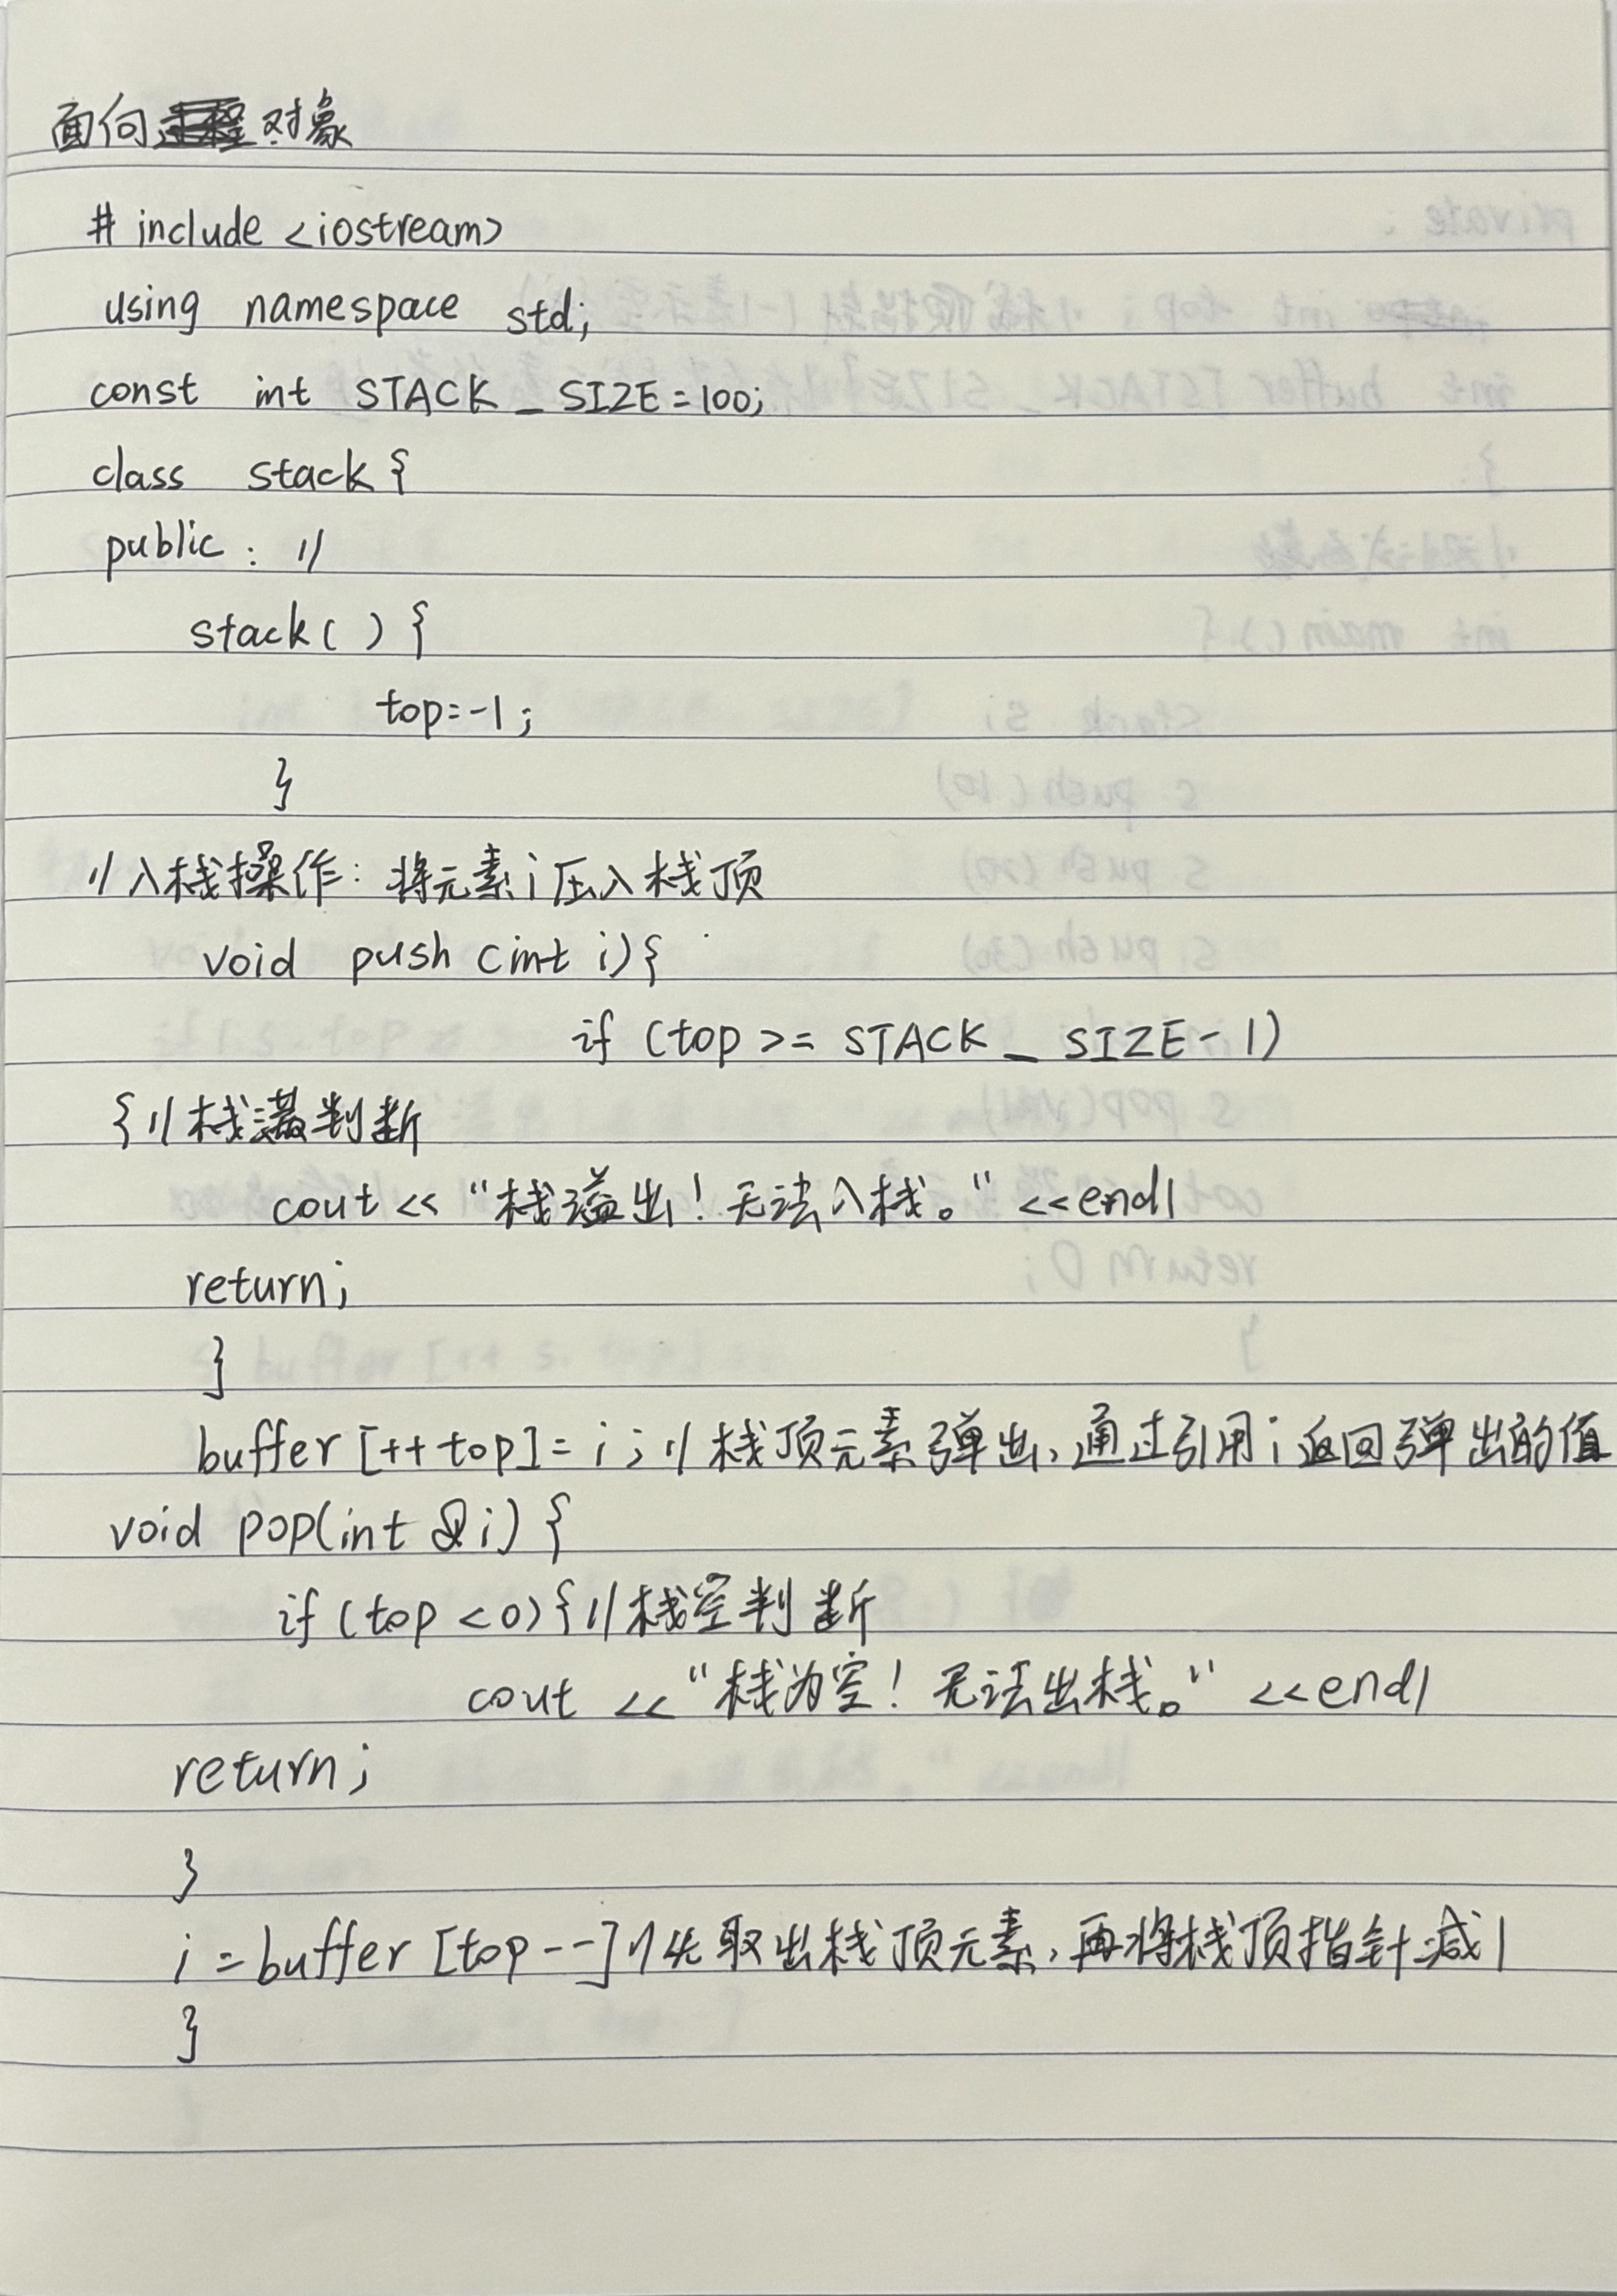 面向对象
# include <iostream>
using namespace std;
const int STACK _ SIZE=100;
class stack {
public : //
stack( ) {
top=-1;
}
//入栈操作: 将元素i压入栈顶
void push (int i){
if (top >= STACK _ SIZE-1)
{//栈满判断
cout << "栈溢出! 无法入栈。" <<endl
return;
}
buffer [++top]= i ; // 栈顶元素弹出,通过引用i返回弹出的值
void pop(int &i) {
if (top <0){//栈空判断
cout <<"栈为空! 无法出栈。" <<endl
return;
}
i =buffer [top--]//先取出栈顶元素,再将栈顶指针减1
}